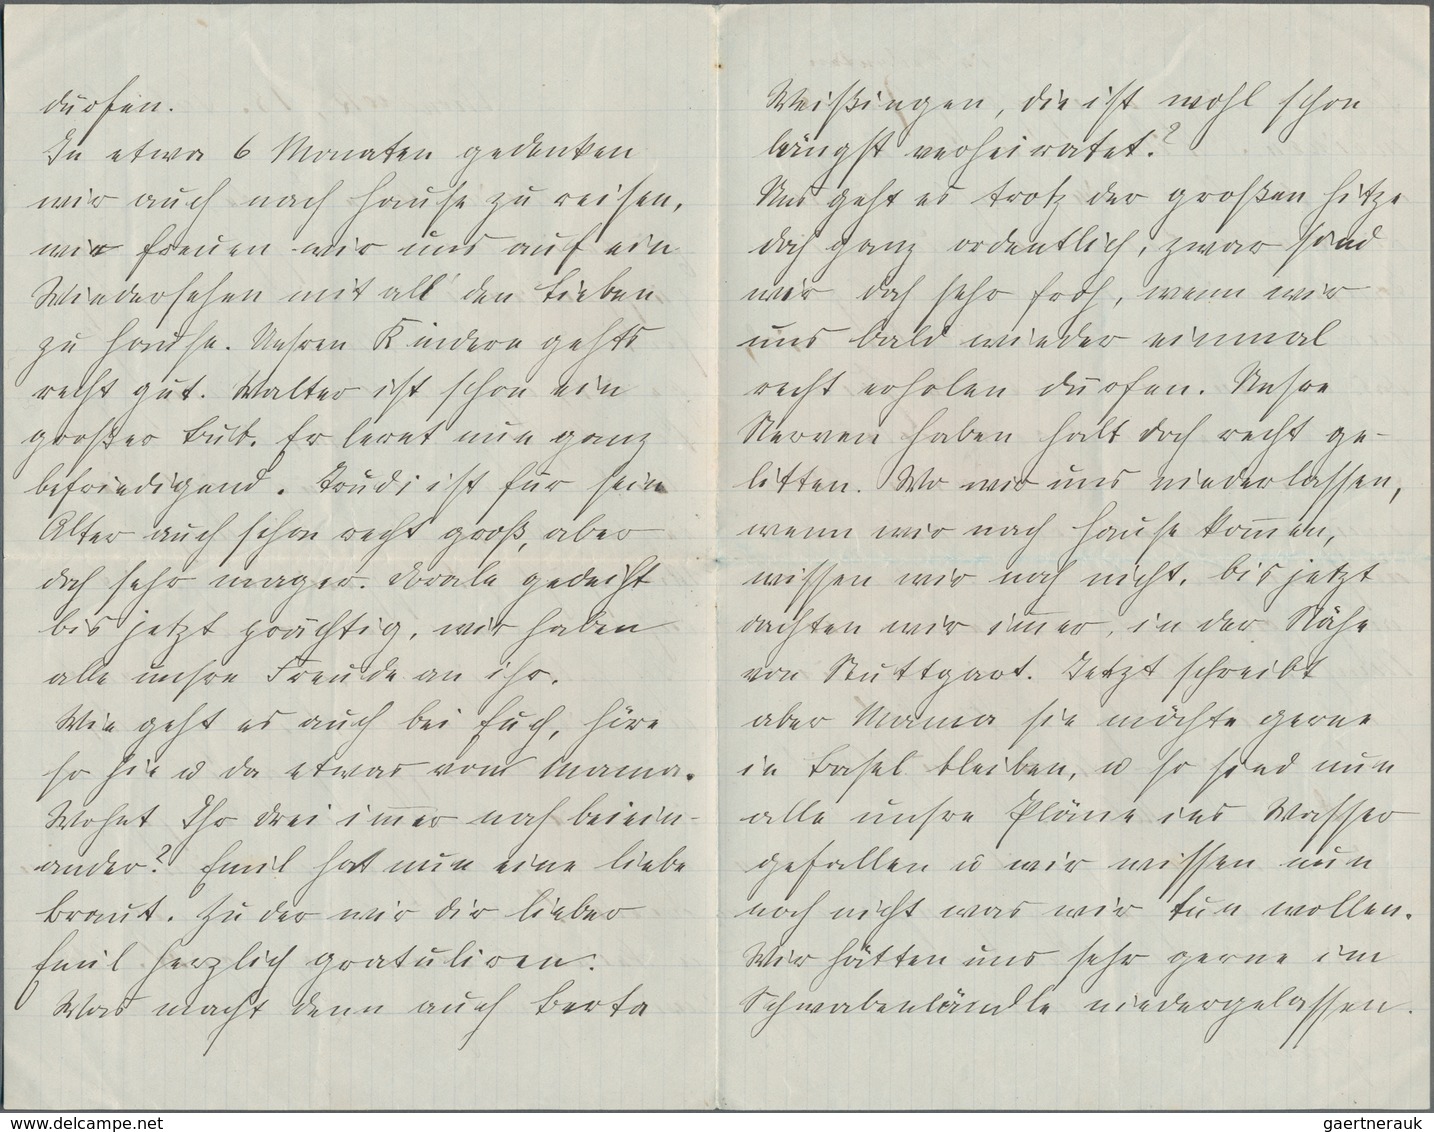 durfen.
In etwa 6 Monaten gedenken
wir auch nach Hause zu reisen,
wir freuen wir uns auf ein
Wiedersehen mit all' den Lieben
zu Hause. Unsren Kindern gehts
recht gut. Walter ist schon ein
großer Bub. Er lernt nun ganz
befriedigend. Trudi ist für sein
Alter auch schon recht groß, aber
doch sehr mager. Dorale gedeiht
bis jetzt prächtig, wir haben
alle unsre Freude an ihr.
Wie geht es auch bei Euch, höre
so hie u da etwas von Mama.
Wohnt Ihr drei immer noch beiein-
ander? Emil hat nun eine liebe
Braut. Zu der wir dir lieber
Emil herzlich gratuliren.
Was macht denn auch Berta
Weißingen, die ist wohl schon
längst verheiratet?
Uns geht es trotz der großen Hitze
doch ganz ordentlich, zwar sind
wir doch sehr froh, wenn wir
uns bald wieder einmal
recht erholen durfen. Unsre
Nerven haben halt doch recht ge-
litten. Wo wir uns niederlassen,
wenn wir nach Hause kommen,
wissen wir noch nicht, bis jetzt
dachten wir immer, in der Nähe
von Stuttgart. Jetzt schreibt
aber Mama sie möchte gerne
in Basel bleiben, u so sind nun
alle unsre Pläne ins Wasser
gefallen u wir wissen nun
noch nicht was wir tun wollen.
Wir hätten uns sehr gerne im
Schwabenländle niedergelassen.
www.delcampe.net
gaertnerauk